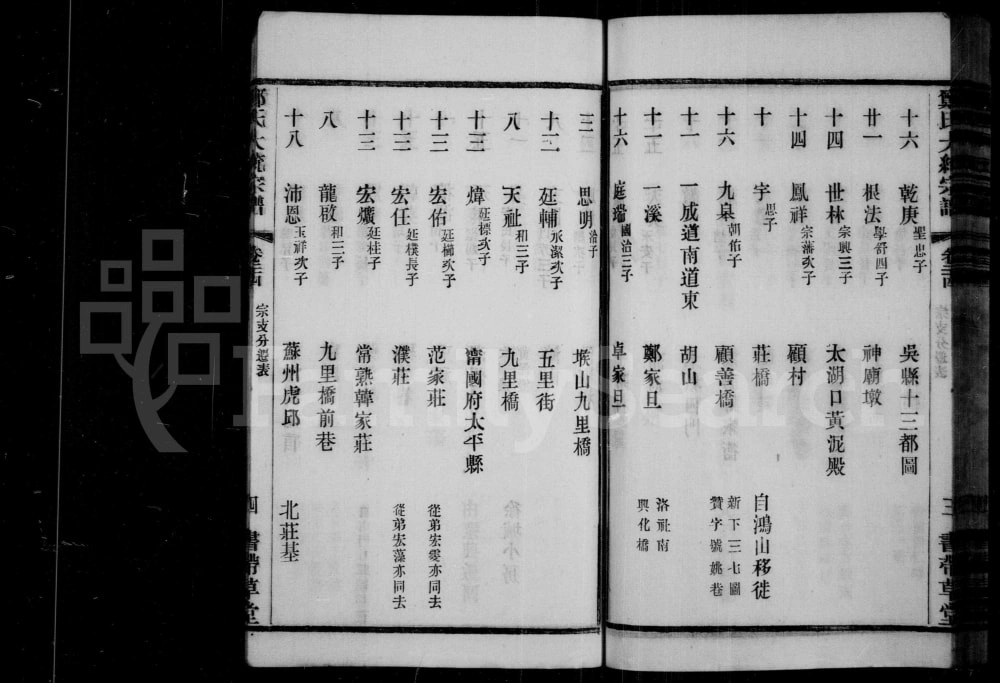 鄭氏大統宗譜 卷三四 宗支分遷表 三 書帶草堂
十六 乾庚 聖忠子 吳縣十三都圖
廿一 根法 學舒四子 神廟墩
十四 世林 宗興三子 太湖口黃泥殿
十四 鳳祥 宗藩次子 顧村
十 字 思子 莊橋 自鴻山移徙
十六 九臯 朝佑子 顧善橋 新下三七圖 贊字號姚巷
十一 一成道南道東 胡山
十二 一溪 鄭家旦 洛祉南 興化橋
十六 庭瑞 國治三子 卓家旦
三 思明 治子 堠山九里橋
十二 廷輔 永潔次子 五里街
八 天祉 和二子 九里橋
十三 煒 廷標次子 甯國府太平縣
十三 宏佑 廷樾次子 范家莊 從弟宏雯亦同去
十三 宏任 廷樸長子 濮莊 從弟宏藻亦同去
十三 宏爌 廷桂子 常熟韓家莊
八 龍啟 和三子 九里橋前巷
十八 沛恩 玉祥次子 蘇州虎邱 北莊基
鄭氏大統宗譜 卷三四 宗支分遷表 四 書帶草堂
FamilySearch